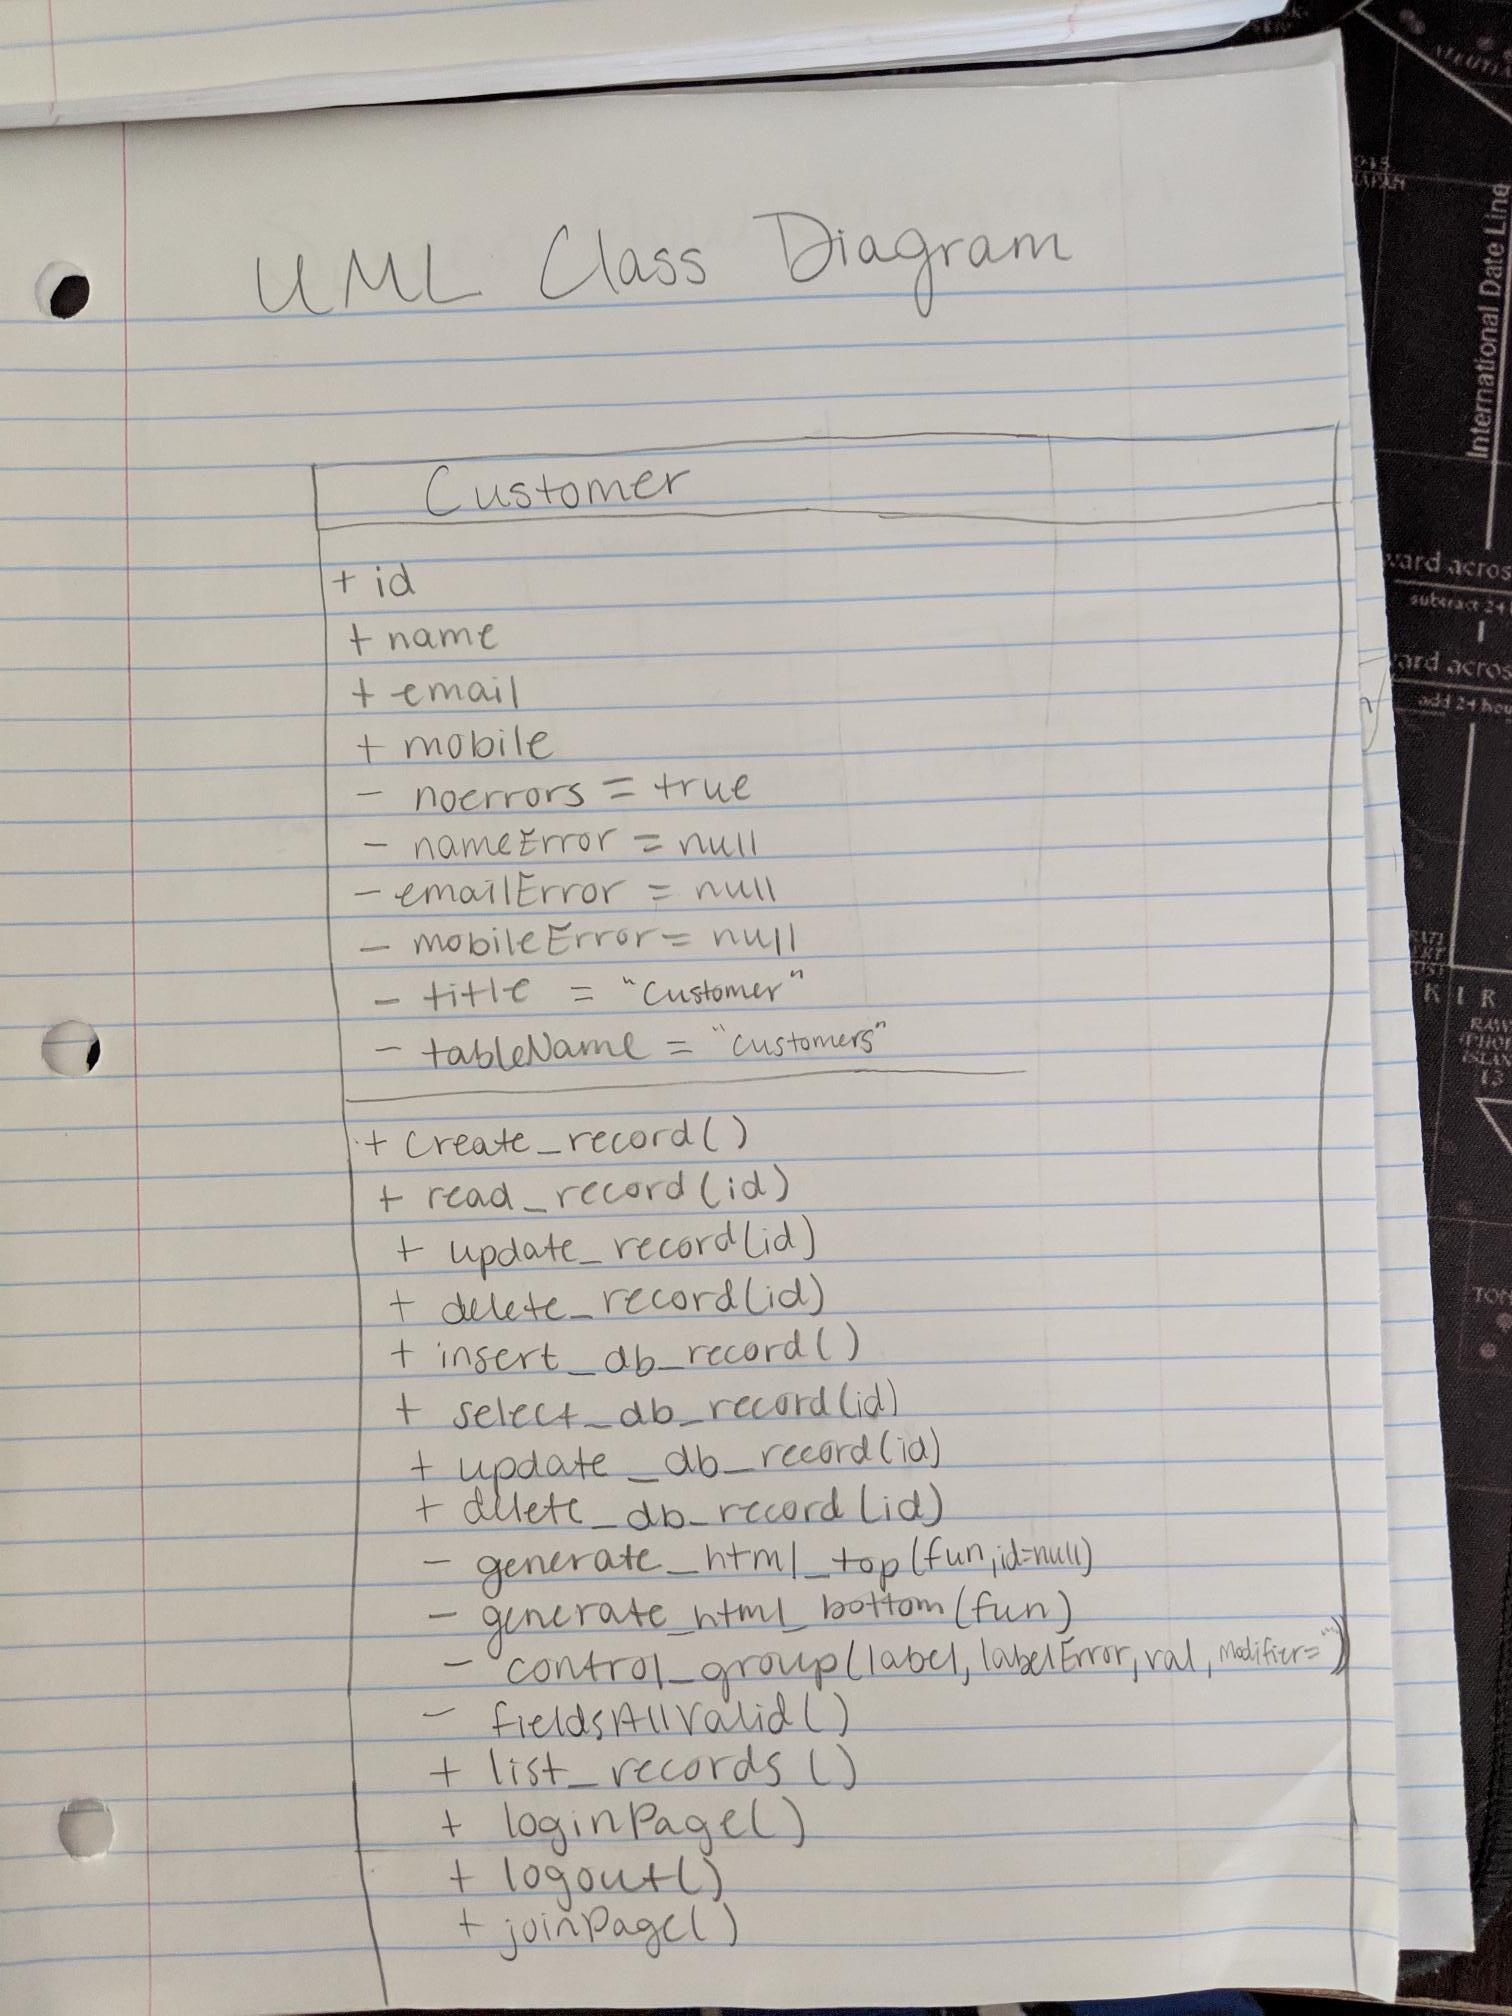 UML Class Diagram
Customer
+ id
+ name
+ email
+ mobile
- noerrors = true
- nameError = null
- emailError = null
- mobileError = null
- title = "Customer"
- tableName = "customers"
+ create_record()
+ read_record(id)
+ update_record(id)
+ delete_record(id)
+ insert_db_record()
+ select_db_record(id)
+ update_db_record(id)
+ delete_db_record(id)
- generate_html_top(fun,id=null)
- generate_html_bottom(fun)
- control_group(label, labelError, val, modifier="")
- fieldsAllValid()
+ list_records()
+ loginPage()
+ logout()
+ joinPage()
International Date Line